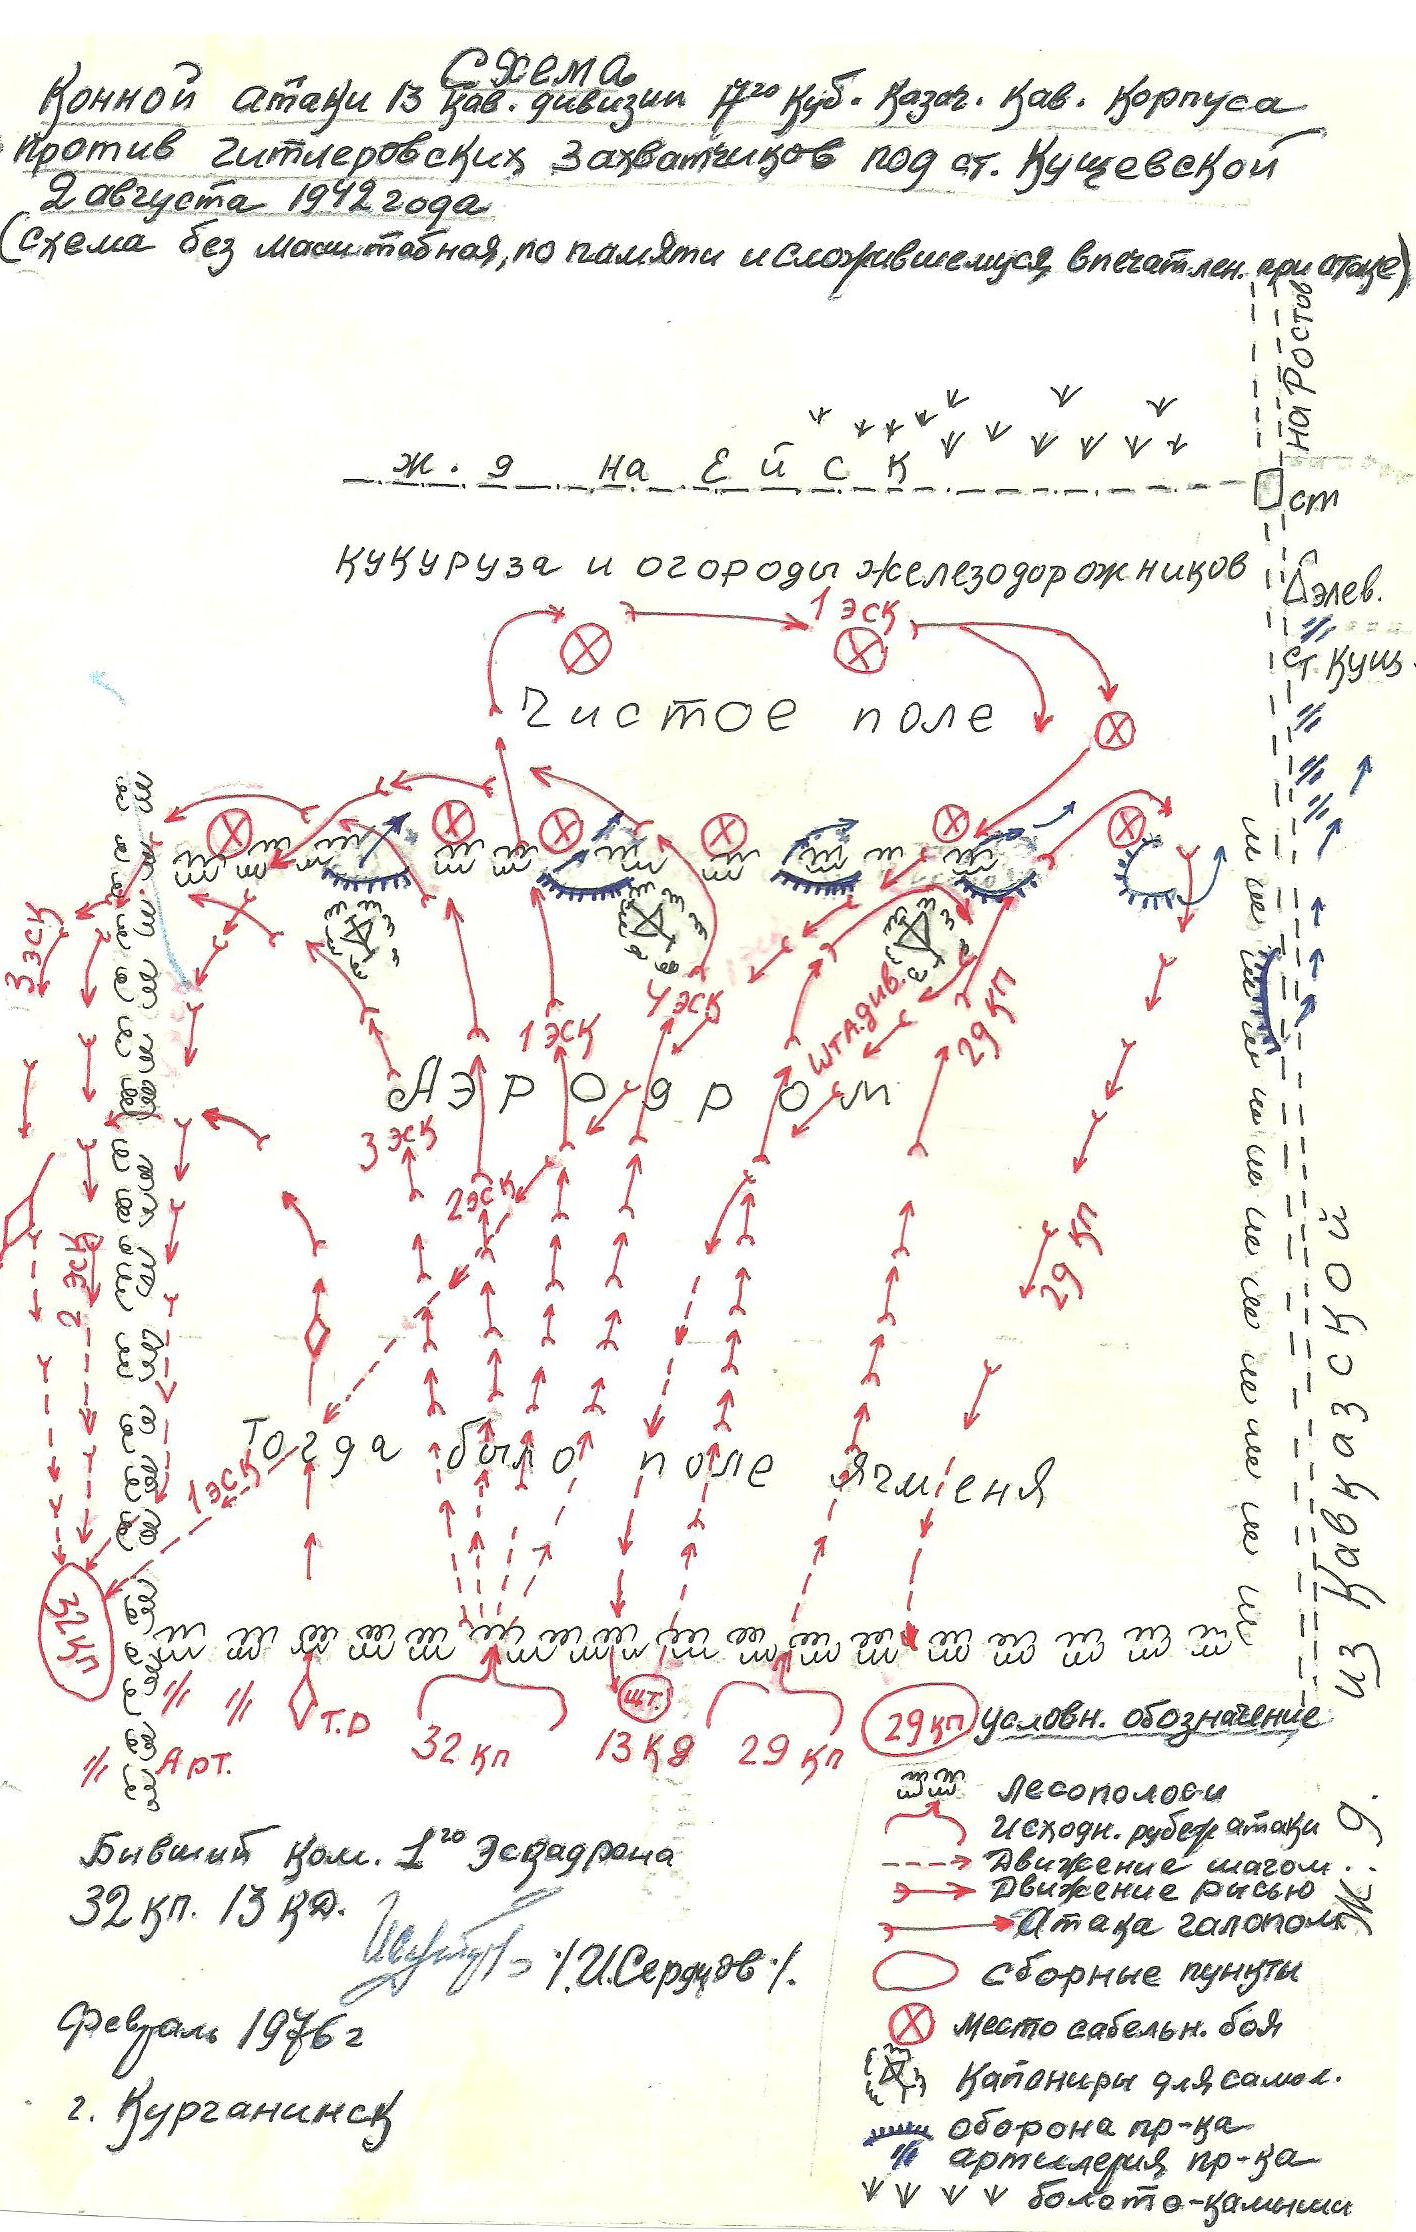 Схема
Конной атаки 13 кав. дивизии 17го Куб. Казач. Кав. Корпуса
против гитлеровских захватчиков под ст. Кущевской
2 августа 1942 года
(схема без масштабная, по памяти и сложившемуся впечатлен. при атаке)
на Ростов
ж. д на Ейск
ст
кукуруза и огороды железодорожников
элев.
1 эск
ст. Кущ.
Чистое поле
3 эск
4 эск
1 эск
шта.див.
29 кп
Аэродром
3 эск
2 эск
2 эск
29 кп
Тогда было поле ячменя
1 эск
из Кавказской
Ж д.
32 кп
шт.
Т.Д
32 кп
13 кд
29 кп
29 кп
Арт.
условн. обозначение
Лесополоси
Исходн. рубеж атаки
Движение шагом
Движение рысью
Атака галопом
сборные пункты
Место сабельн. боя
Капониры для самол.
оборона пр-ка
артилерия пр-ка
болото-камыши
Бывший ком. 1го Эскадрона
32 кп. 13 КД.
/И.Сердцов/.
Февраль 1976 г
г. Курганинск